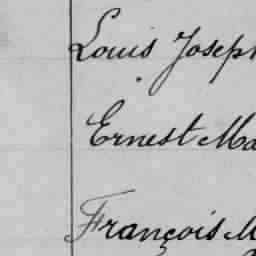 Louis Joseph
Ernest Ma
François M